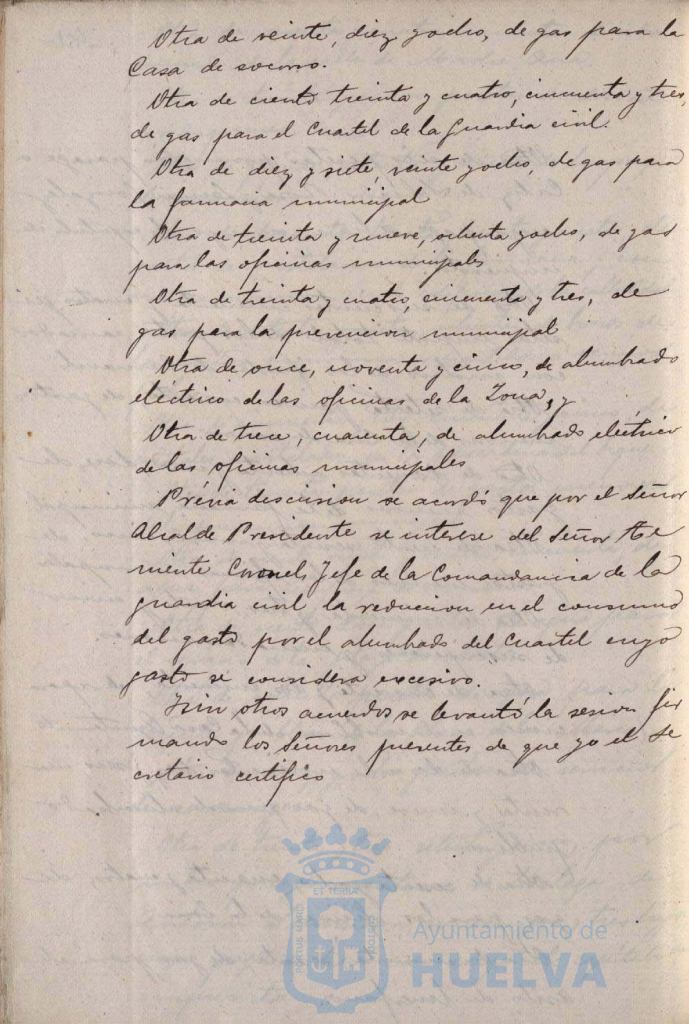 Otra de veinte, diez y ocho, de gas para la
Casa de socorro.
Otra de ciento treinta y cuatro, cincuenta y tres,
de gas para el Cuartel de la Guardia civil.
Otra de diez y siete, veinte y ocho, de gas para
la farmacia municipal
Otra de treinta y nueve, ochenta y ocho, de gas
para las oficinas municipales
Otra de treinta y cuatro, cincuenta y tres, de
gas para la prevencion municipal
Otra de once, noventa y cinco, de alumbrado
eléctrico de las oficinas de la Zona, y
Otra de trece, cuarenta, de alumbrado eléctrico
de las oficinas municipales
Prévia discusion se acordó que por el Señor
Alcalde Presidente se interese del Señor Te
niente Coronel Jefe de la Comandancia de la
guardia civil la reduccion en el consumo
del gasto por el alumbrado del Cuartel cuyo
gasto se considera excesivo.
Y sin otros acuerdos se levantó la sesion fir
mando los Señores presentes de que yo el Se
cretario certifico
ET TERRA
PORTUS MARIS
CUSTODIA
Ayuntamiento de
HUELVA